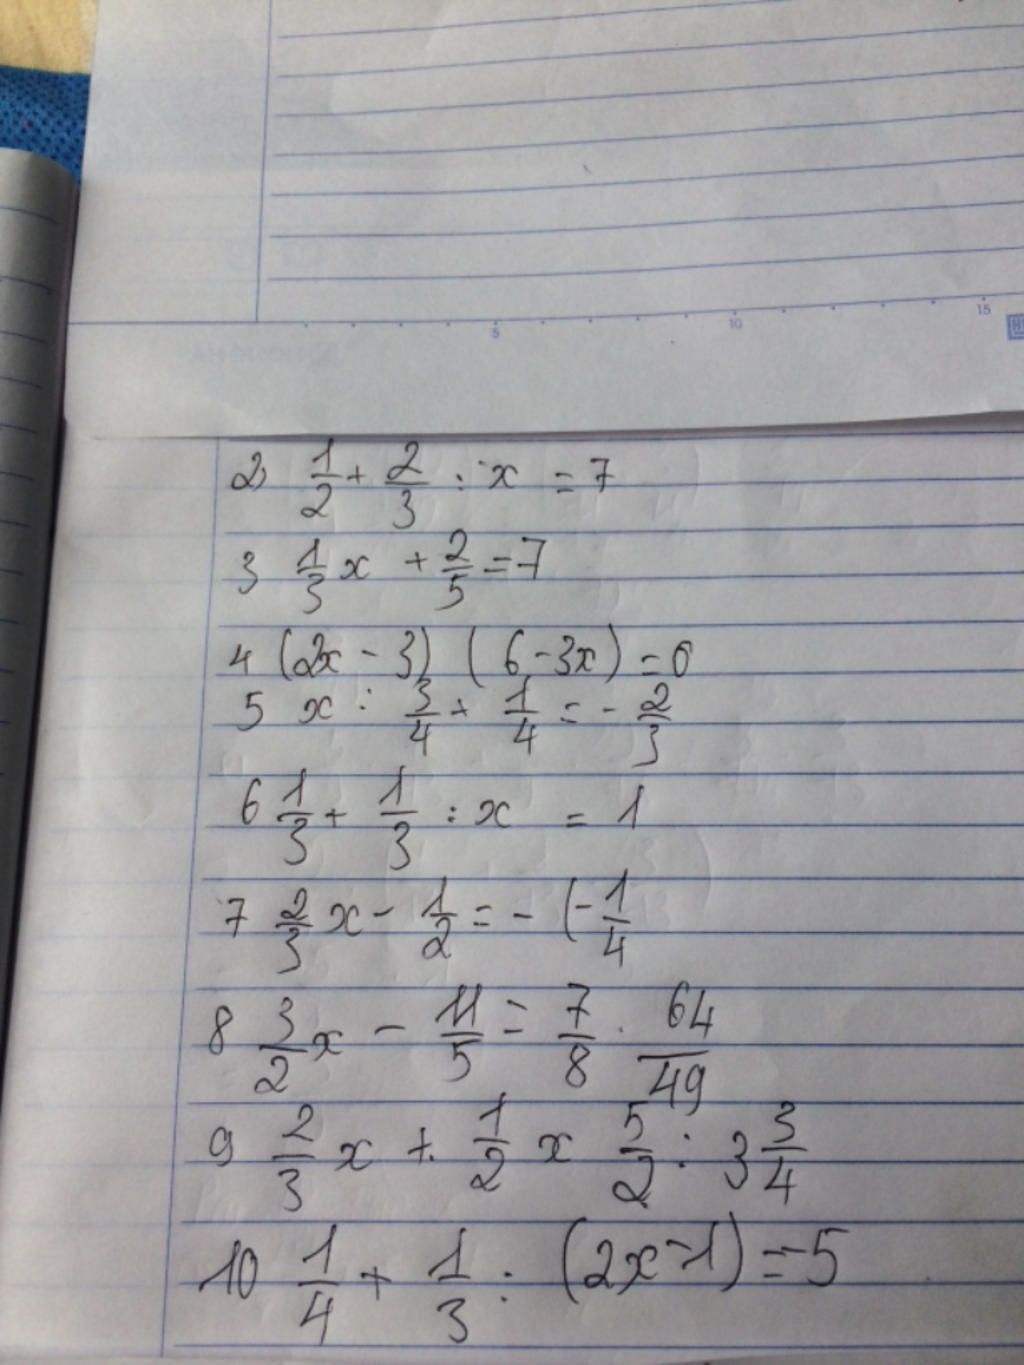 5 10 15
2) 1/2 + 2/3 : x = 7
3 1/3 x + 2/5 = 7
4 (2x - 3) (6 - 3x) = 0
5 x : 3/4 + 1/4 = - 2/3
6 1/3 + 1/3 : x = 1
7 2/3 x - 1/2 = - (- 1/4
8 3/2 x - 11/5 = 7/8 . 64/49
9 2/3 x + 1/2 x 5/2 : 3 3/4
10 1/4 + 1/3 : (2x - 1) = -5